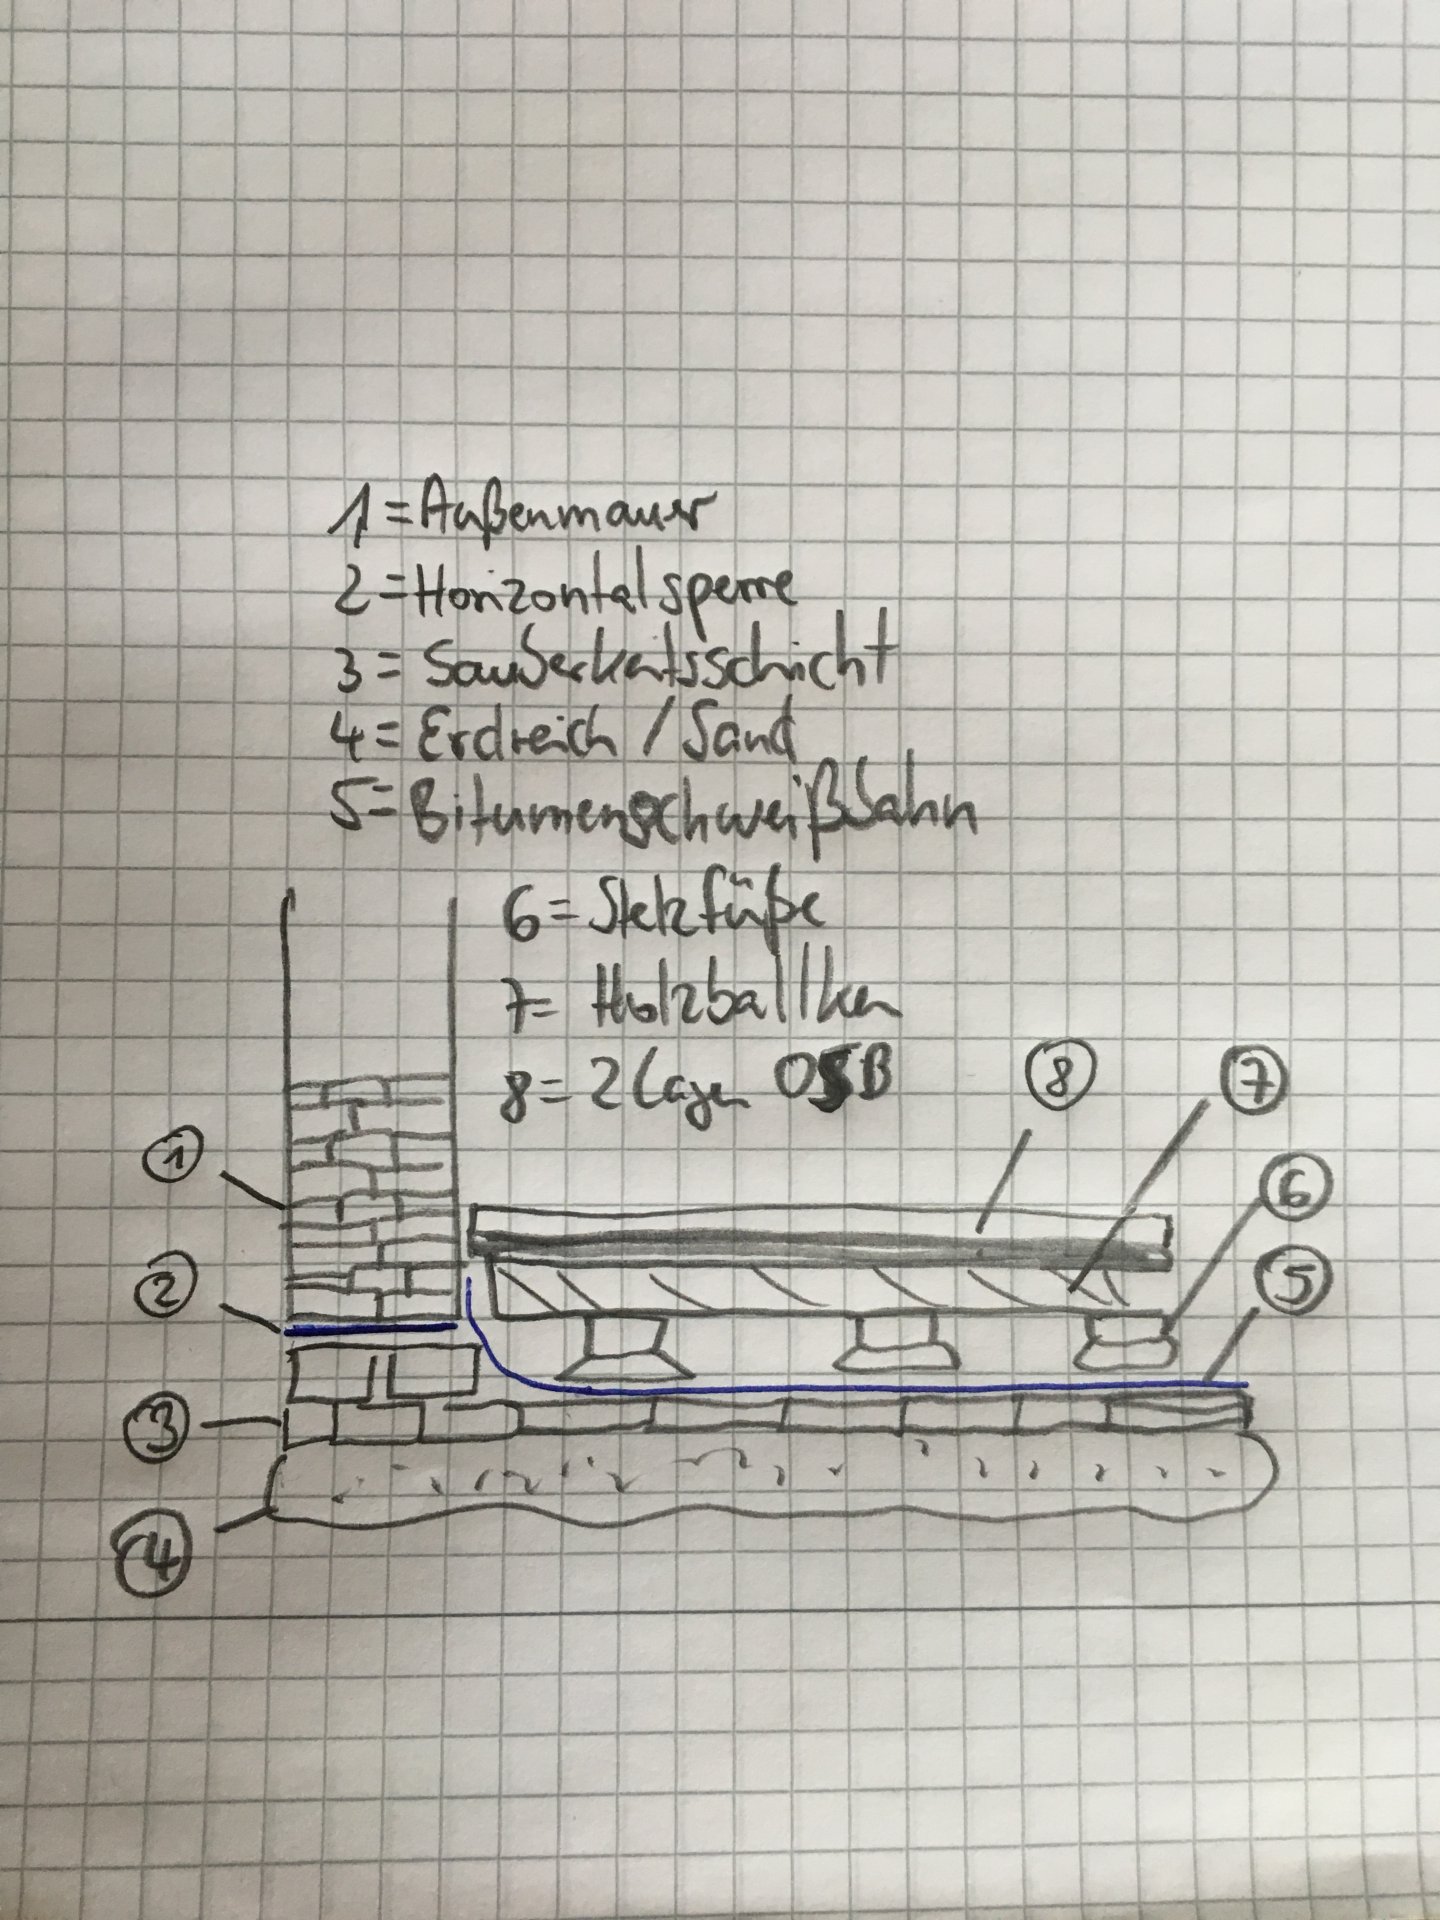 1=Außenmauer
2=Horizontalsperre
3=Sauberkeitsschicht
4=Erdreich / Sand
5=Bitumenschweißbahn
6=Stelzfüße
7= Holzballken
8=2 Lagen OSB
8
7
1
6
2
5
3
4